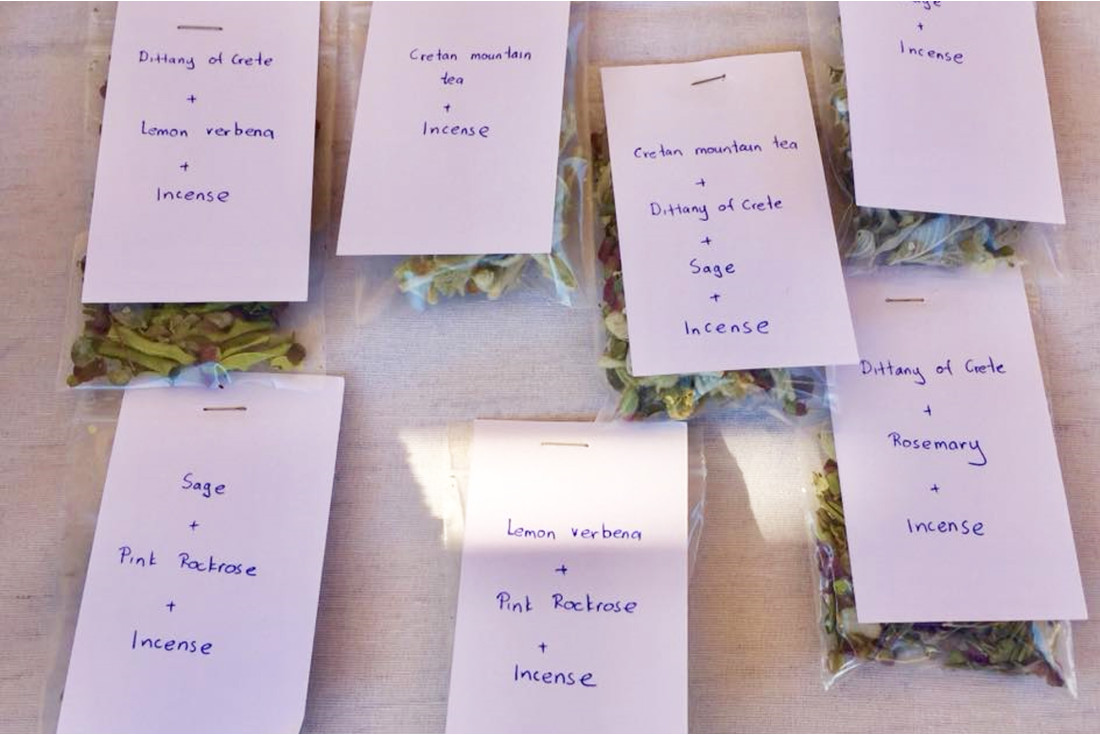 Dittany of Crete
+
Lemon verbena
+
Incense
Cretan mountain
tea
+
Incense
Cretan mountain tea
+
Dittany of Crete
+
Sage
+
Incense
+
Incense
Sage
+
Pink Rockrose
+
Incense
Lemon verbena
+
Pink Rockrose
+
Incense
Dittany of Crete
+
Rosemary
+
Incense